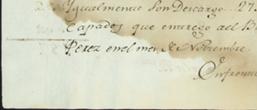 Ygualmente Son Descargo... 27
Capados que entregó ael B
Perez en el mes de Nobiembre